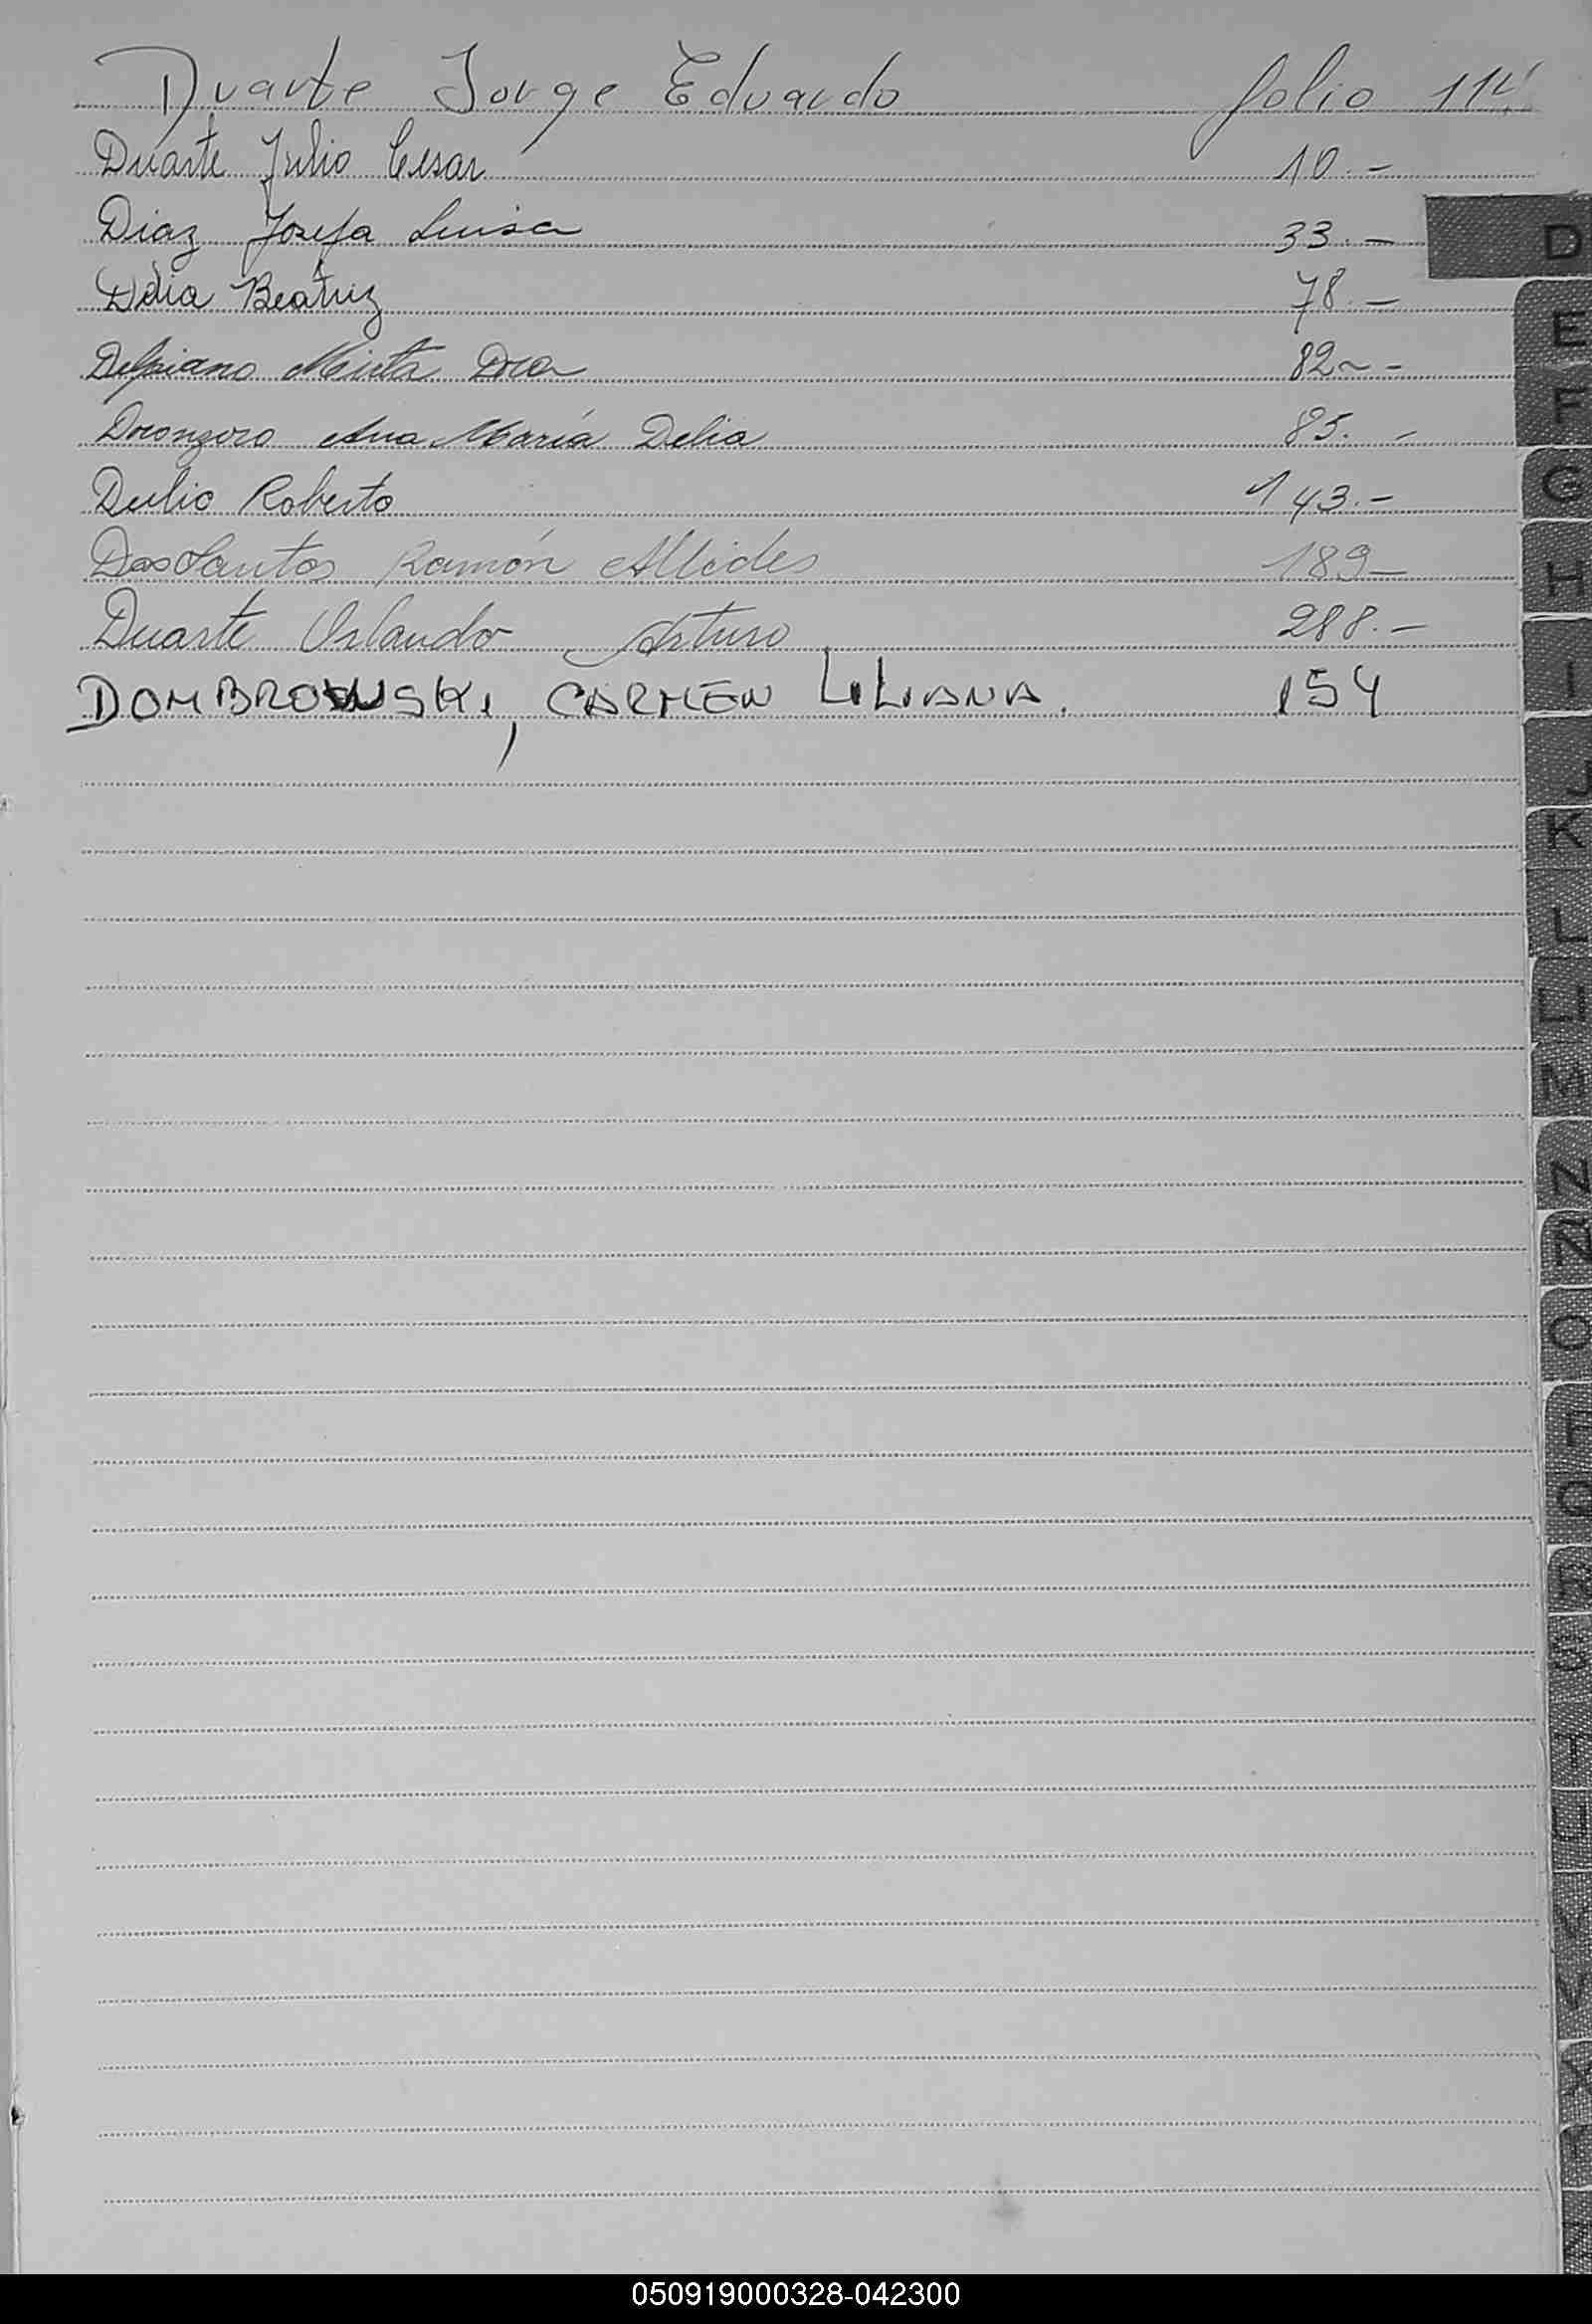 Duarte Jorge Eduardo folio 114
Duarte Julio Cesar 10.-
Diaz Josefa Luisa 33.-
Delia Beatriz 78.-
Delpiano Mirta Dora 82 -
Doronzoro Ana María Delia 85. -
Dulio Roberto 143.-
Dos Santos Ramón Alcides 189-
Duarte Orlando Arturo 288.-
DOMBROWSKI, CARMEN LILIANA. 154
D
E
F
G
H
I
J
K
L
LL
M
N
Ñ
O
P
Q
R
S
T
U
V
X
Z
050919000328-042300